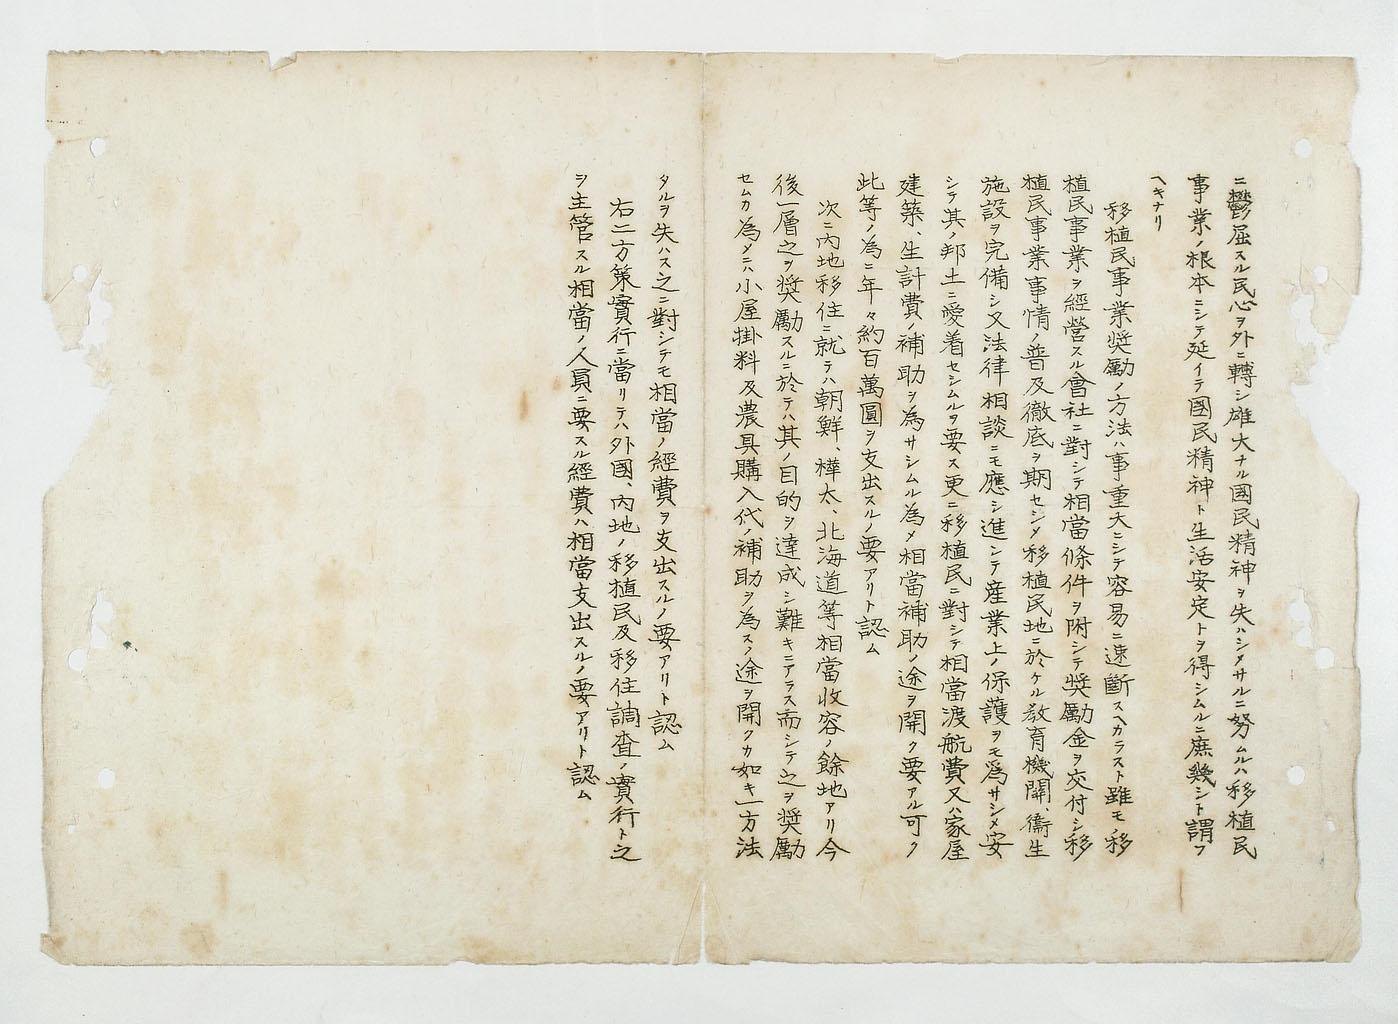 ニ鬱屈スル民心ヲ外ニ轉シ雄大ナル國民精神ヲ失ハシメサルニ努ムルハ移植民
事業ノ根本ニシテ延イテ國民精神ト生活安定トヲ得シムルニ庶幾シト謂フ
ヘキナリ
移植民事業奨勵ノ方法ハ事重大ニシテ容易ニ速斷スヘカラスト雖モ移
植民事業ヲ經營スル會社ニ對シテ相當條件ヲ附シテ奨勵金ヲ交付シ移
植民事業事情ノ普及徹底ヲ期セシメ移植民地ニ於ケル教育機關、衞生
施設ヲ完備シ又法律相談ニモ應シ進ンテ産業上ノ保護ヲモ爲サシメ安
シテ其ノ邦土ニ愛着セシムルヲ要ス更ニ移植民ニ對シテ相當渡航費又ハ家屋
建築、生計費ノ補助ヲ為サシムル為メ相當補助ノ途ヲ開ク要アル可ク
此等ノ為ニ年々約百萬圓ヲ支出スルノ要アリト認ム
次ニ内地移住ニ就テハ朝鮮、樺太、北海道等相當收容ノ餘地アリ今
後一層之ヲ奨勵スルニ於テハ其ノ目的ヲ達成シ難キニアラス而シテ之ヲ奨勵
セムカ為メニハ小屋掛料及農具購入代ノ補助ヲ為スノ途ヲ開クカ如キ一方法
タルヲ失ハス之ニ對シテモ相當ノ經費ヲ支出スルノ要アリト認ム
右二方策實行ニ當リテハ外國、内地ノ移植民及移住調査ノ實行ト之
ヲ主管スル相當ノ人員ニ要スル經費ハ相當支出スルノ要アリト認ム